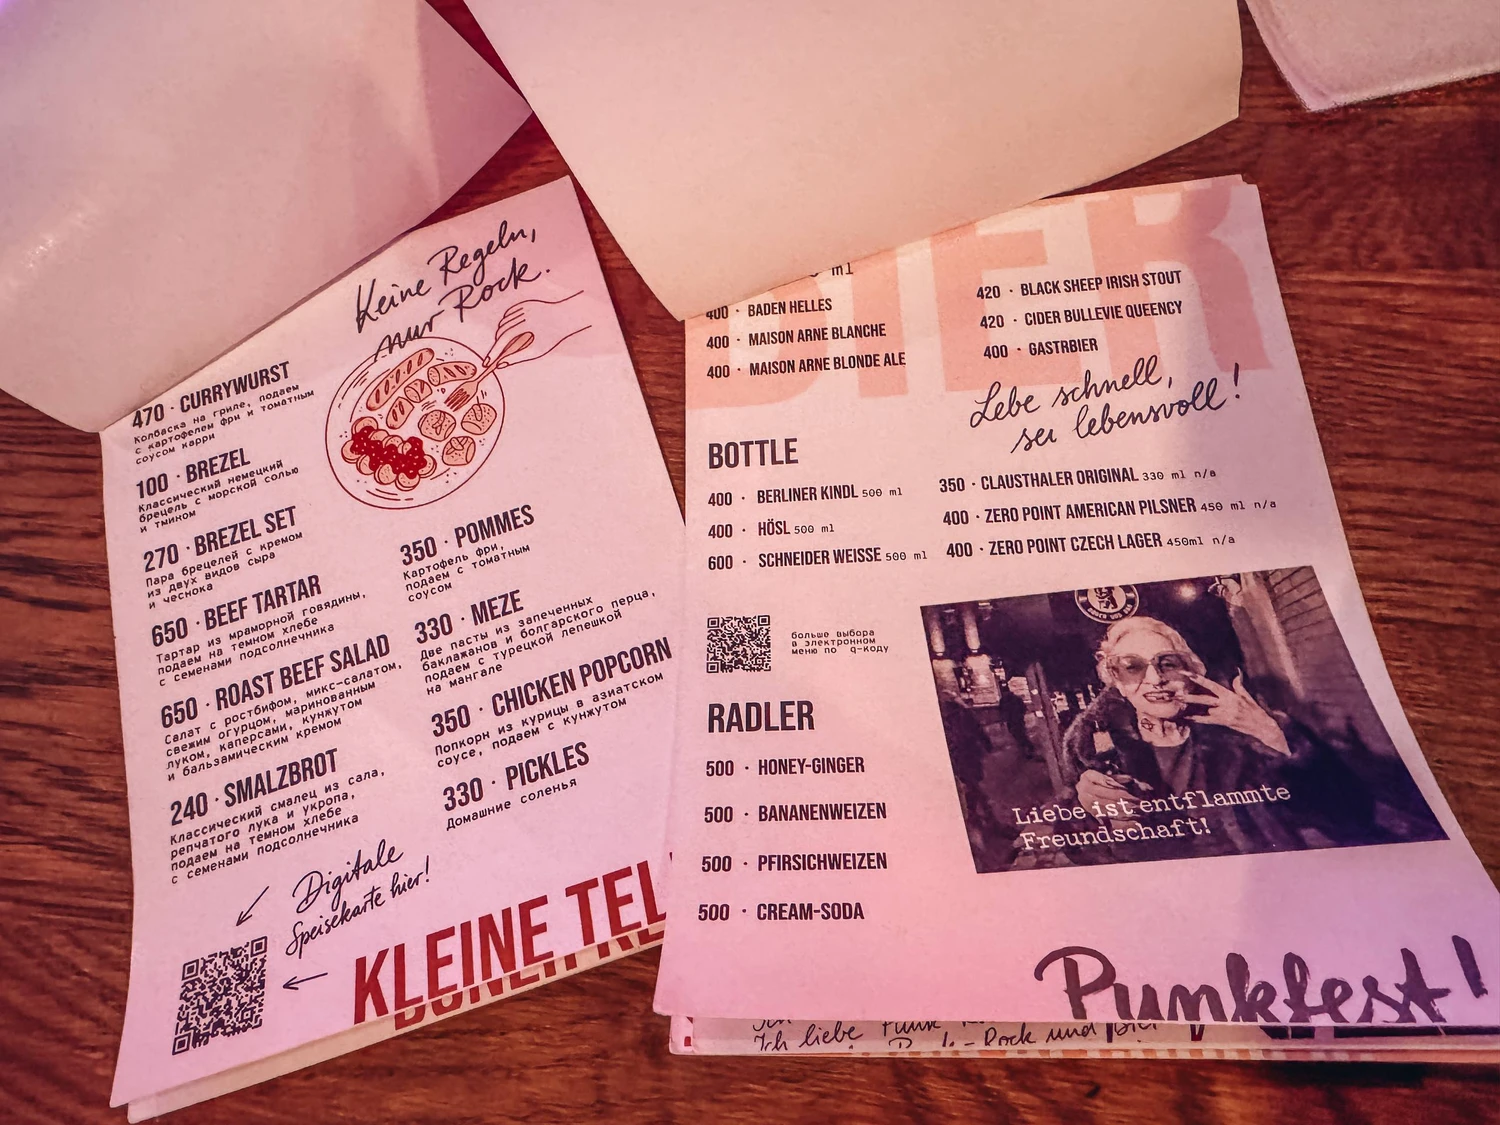 Keine Regeln,
nur Rock.
470 · CURRYWURST
Колбаска на гриле, подаем
с картофелем фри и томатным
соусом карри
100 · BREZEL
Классический немецкий
брецель с морской солью
и тмином
270 · BREZEL SET
Пара брецелей с кремом
из двух видов сыра
и чеснока
650 · BEEF TARTAR
Тартар из мраморной говядины,
подаем на темном хлебе
с семенами подсолнечника
650 · ROAST BEEF SALAD
Салат с ростбифом, микс-салатом,
свежим огурцом, маринованным
луком, каперсами, кунжутом
и бальзамическим кремом
240 · SMALZBROT
Классический смалец из сала,
репчатого лука и укропа,
подаем на темном хлебе
с семенами подсолнечника
350 · POMMES
Картофель фри,
подаем с томатным
соусом
330 · MEZE
Две пасты из запеченных
баклажанов и болгарского перца,
подаем с турецкой лепешкой
на мангале
350 · CHICKEN POPCORN
Попкорн из курицы в азиатском
соусе, подаем с кунжутом
330 · PICKLES
Домашние соленья
Digitale
Speisekarte hier!
KLEINE TEL
BIER
ml
400 · BADEN HELLES
400 · MAISON ARNE BLANCHE
400 · MAISON ARNE BLONDE ALE
420 · BLACK SHEEP IRISH STOUT
420 · CIDER BULLEVIE QUEENCY
400 · GASTRBIER
Lebe schnell,
sei lebensvoll!
BOTTLE
400 · BERLINER KINDL 500 ml
400 · HÖSL 500 ml
600 · SCHNEIDER WEISSE 500 ml
350 · CLAUSTHALER ORIGINAL 330 ml n/a
400 · ZERO POINT AMERICAN PILSNER 450 ml n/a
400 · ZERO POINT CZECH LAGER 450ml n/a
больше выбора
в электронном
меню по q-коду
RADLER
500 · HONEY-GINGER
500 · BANANENWEIZEN
500 · PFIRSICHWEIZEN
500 · CREAM-SODA
Liebe ist entflammte
Freundschaft!
Punkfest!
Ich liebe Punk-Rock und Bier